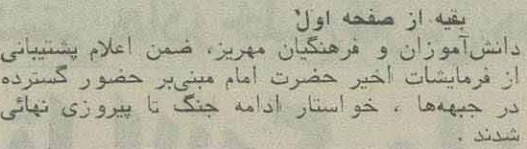 بقیه از صفحه اول
دانش‌آموزان و فرهنگیان مهریز، ضمن اعلام پشتیبانی
از فرمایشات اخیر حضرت امام مبنی‌بر حضور گسترده
در جبهه‌ها ، خواستار ادامه جنگ تا پیروزی نهائی
شدند .